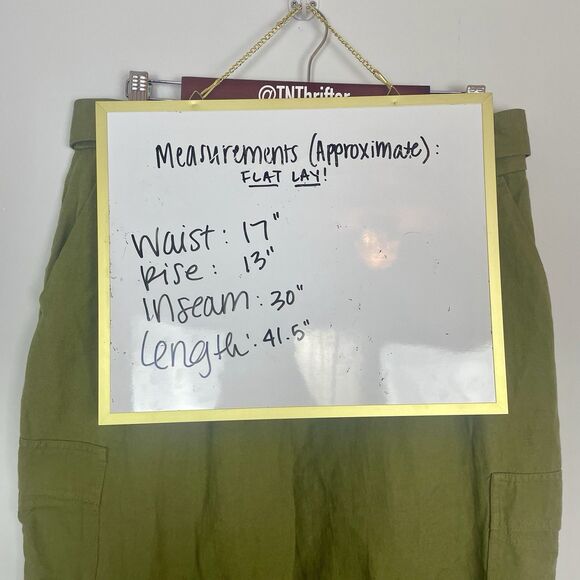 @TNThrifter
Measurements (Approximate):
FLAT LAY!
Waist: 17"
Rise: 13"
Inseam: 30"
Length: 41.5"